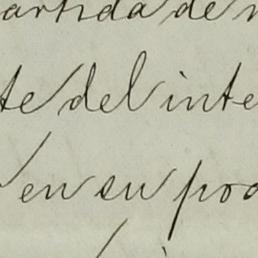 partida de
te del inte
en su pod